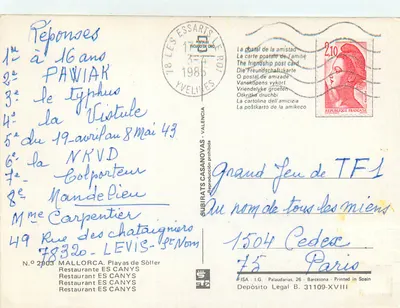 Réponses
1re à 16 ans
2e PAWIAK
3e le typhus
4e la Vistule
5e du 19 avril au 8 Mai 43
6e la NKVD
7e Colporteur
8e Mandelieu
Mme Carpentier
49 Rue des chataigniers
78320 - LEVIS-St Nom
N.º 2003 MALLORCA. Playas de Sóller
Restaurante ES CANYS
Restaurante ES CANYS
Restaurante ES CANYS
Restaurant ES CANYS
SUBIRATS CASANOVAS - VALENCIA
78 LES ESSARTS LE ROI
1985
YVELINES
La postal de la amistad
La carte postale de l'amitié
The friendship post card
Die Freundschaftskarte
O postal de amizade
Vanskapens vykort
Vriendelijke groeten
La cartolina dell'amicizia
2,10
RÉPUBLIQUE FRANÇAISE
Grand Jeu de TF1
Au nom de tous les miens
1504 Cedex
75 Paris
ISA - Barcelona - Printed in Spain
Depósito Legal B. 31109-XVIII